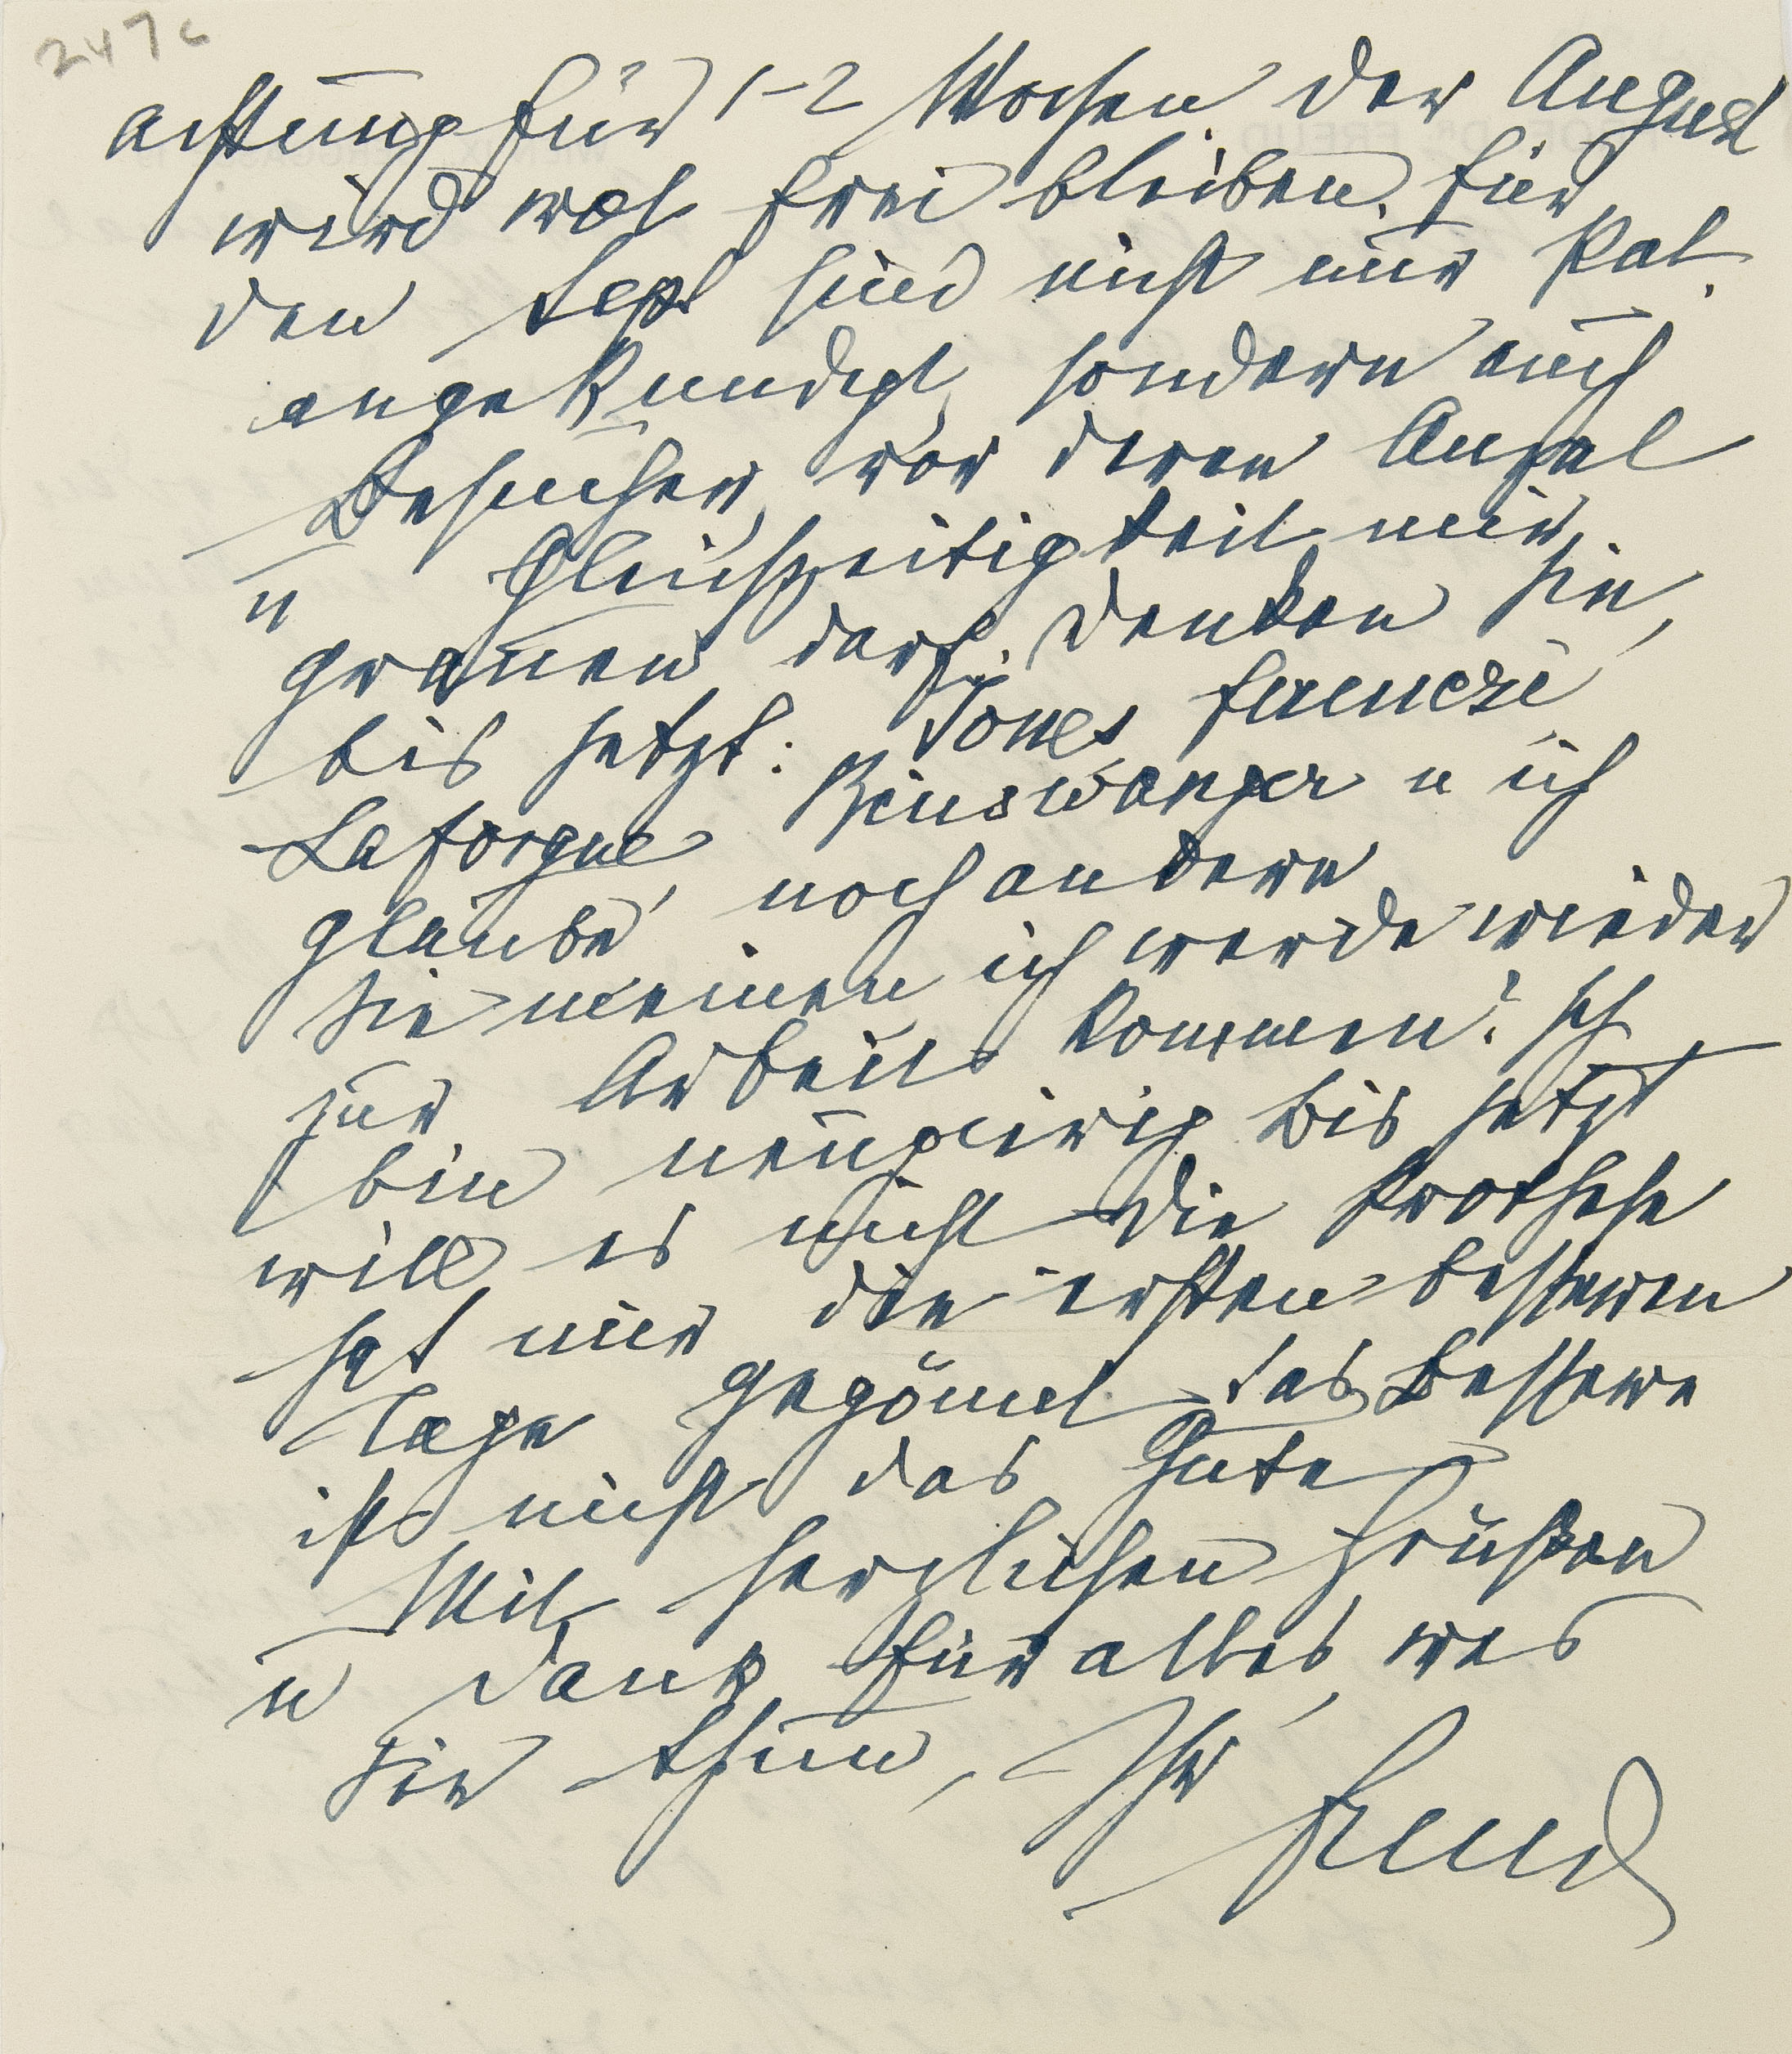 247c
achtung für 1–2 Wochen. der August
wird wol frei bleiben. für
den Sept sind nicht nur Pat.
angekündigt, sondern auch
Besucher, vor deren Anzal
u Gleichzeitigkeit mir
grauen darf. Denken Sie,
bis jetzt: Jones Ferenczi
Laforgue Binswanger u ich
glaube, noch andere
Sie meinen ich werde wieder
zur Arbeit kommen? Ich
bin neugierig bis jetzt
will es nicht die Prothese
hat mir die ersten besseren
Tage gegönnt das Bessere
ist nicht das Gute
Mit herzlichen Grüßen
u Dank für alles, was
Sie thun, Ihr
Freud